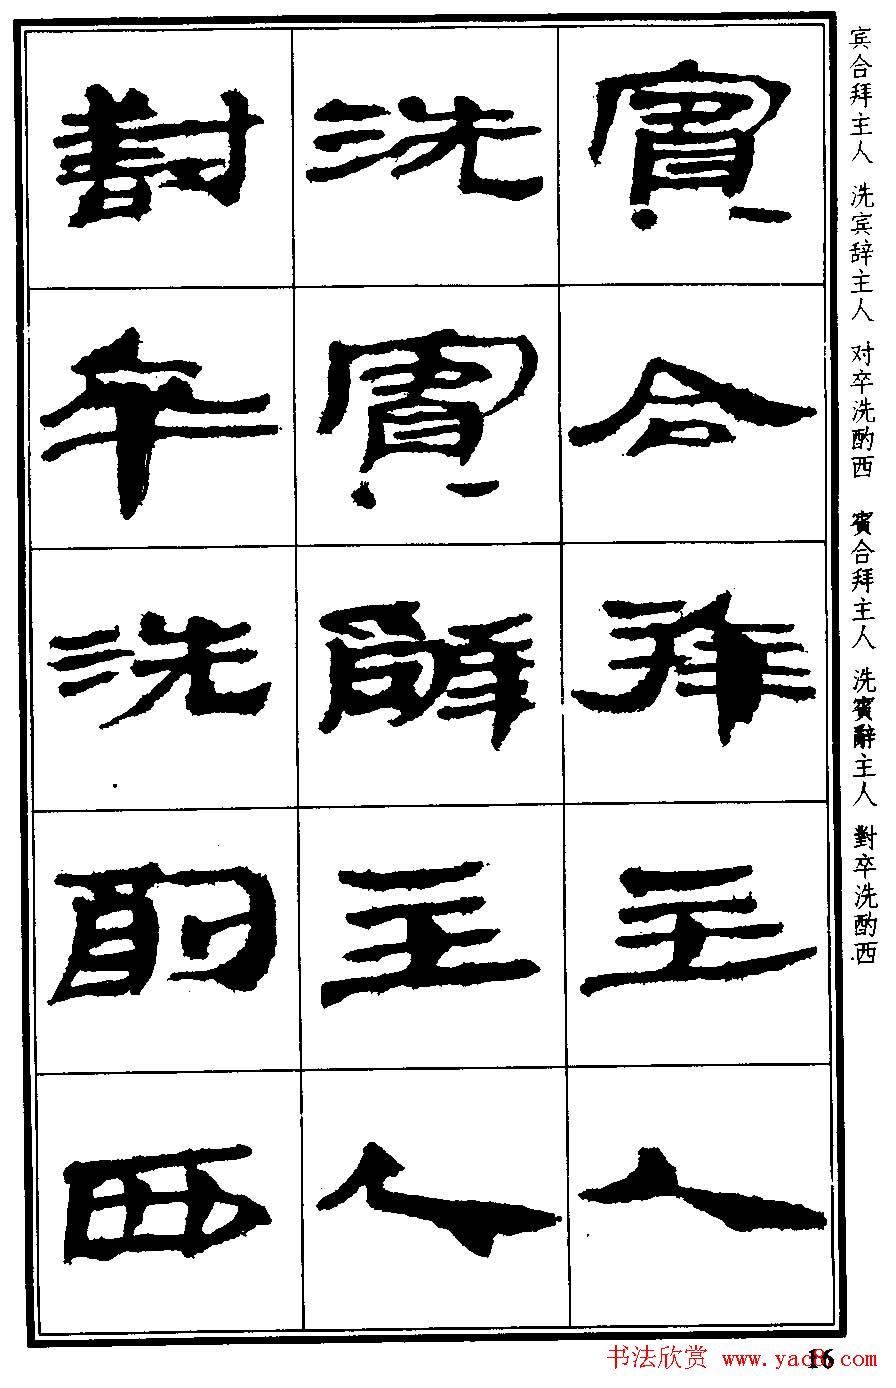 宾合拜主人 洗宾辞主人 对卒洗酌西 賓合拜主人 洗賓辭主人 對卒洗酌西
賓合拜主人
洗賓辭主人
對卒洗酌西
16
书法欣赏 www.yac8.com